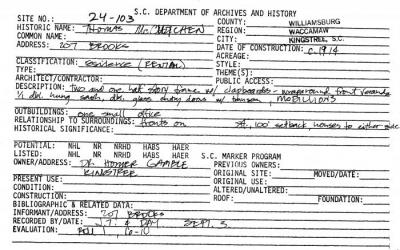 S.C. DEPARTMENT OF ARCHIVES AND HISTORY
SITE NO.: 24-103 COUNTY: WILLIAMSBURG
HISTORIC NAME: Thomas McCutchen REGION: WACCAMAW
COMMON NAME: CITY: KINGSTREE, S.C.
ADDRESS: 207 BROOKS DATE OF CONSTRUCTION: C. 1914
ACREAGE:
CLASSIFICATION: residence (RENTAL) STYLE:
THEME(S):
ARCHITECT/CONTRACTOR: PUBLIC ACCESS:
DESCRIPTION: two and one half story frame w/ clapboards - wraparound front veranda
1/1 dbl. hung sash, dbl. glass entry doors w/ transom MODILLIONS
OUTBUILDINGS: one small office
RELATIONSHIP TO SURROUNDINGS: fronts on St., 100' setback houses to either side
HISTORICAL SIGNIFICANCE:
POTENTIAL: NHL NR NRHD HABS HAER
LISTED: NHL NR NRHD HABS HAER S.C. MARKER PROGRAM
OWNER/ADDRESS: DR. HOMER GAMBLE PREVIOUS OWNERS:
KINGSTREE ORIGINAL SITE: MOVED/DATE:
PRESENT USE: ORIGINAL USE:
CONDITION: ALTERED/UNALTERED:
CONSTRUCTION: ROOF: FOUNDATION:
BIBLIOGRAPHIC & RELATED DATA:
INFORMANT/ADDRESS: 207 BROOKS
RECORDED BY/DATE: J.T. & DAY SEPT. 3
EVALUATION: Roll 1, 6-10